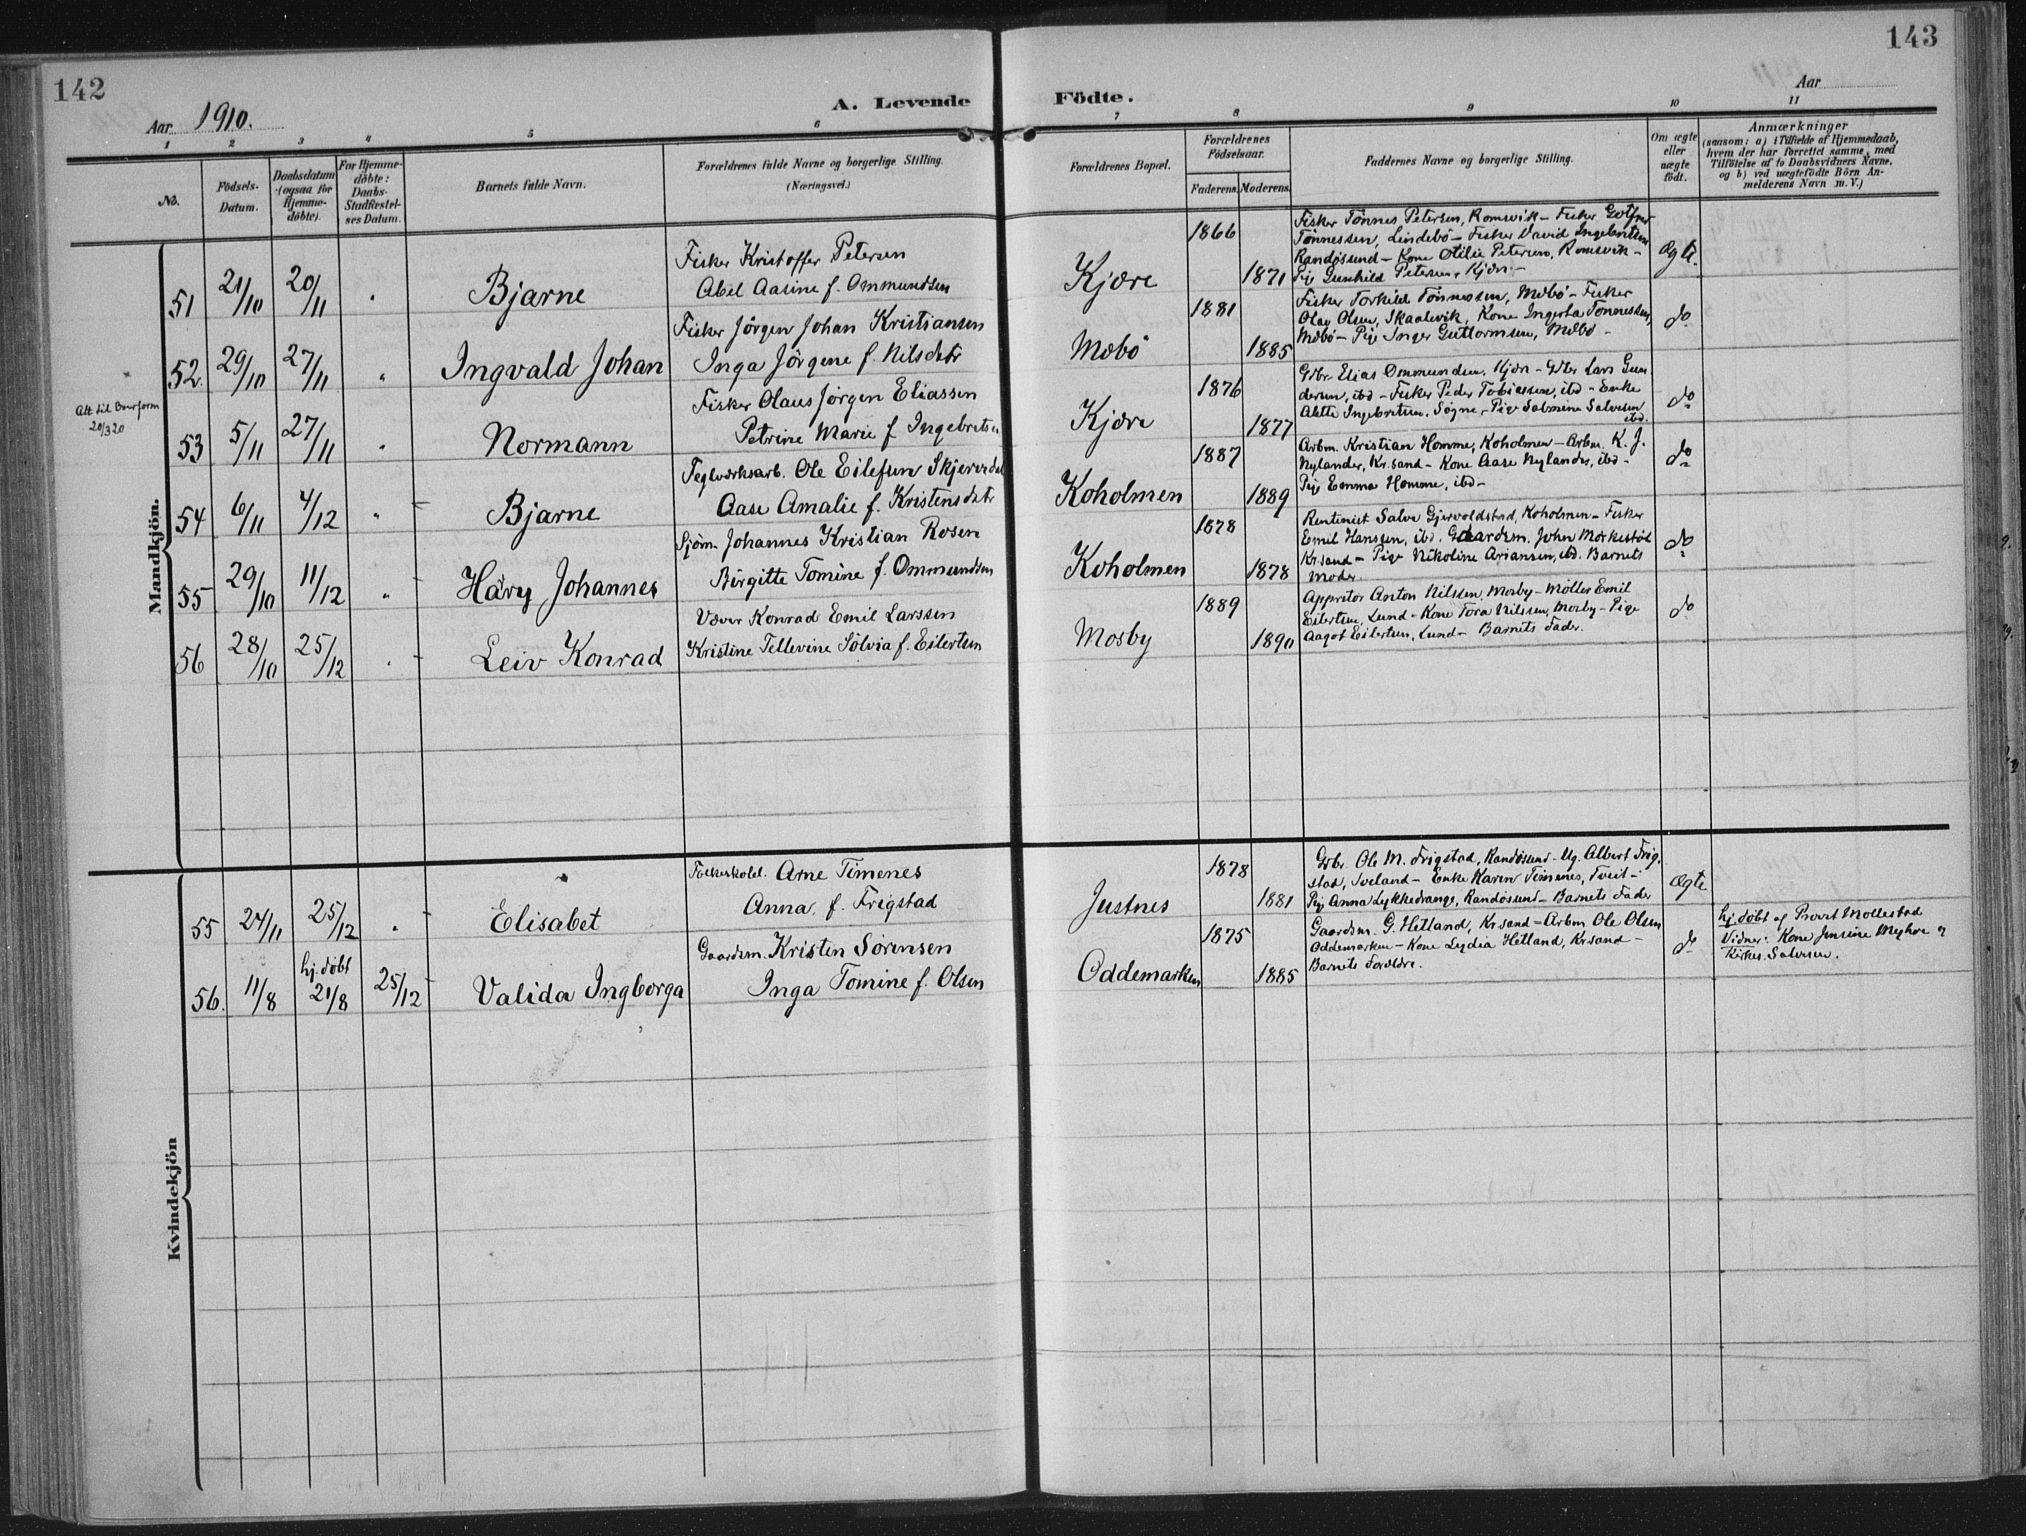 142
143
Aar 1910.
A. Levende Födte.
Aar
1 2 3 4 5 6 7 8 9 10 11
No.
Födsels-
Datum.
Daabsdatum
(ogsaa for
Hjemme-
döbte).
For Hjemme-
döbte:
Daabs-
Stadfæstel-
ses Datum.
Barnets fulde Navn.
Forældrenes fulde Navne og borgerlige Stilling.
(Næringsvei.)
Forældrenes Bopæl.
Forældrenes
Födselsaar.
Faderens. Moderens.
Faddernes Navne og borgerlige Stilling.
Om ægte
eller
uægte
födt.
Anmærkninger
(saasom: a) i Tilfælde af Hjemmedaab,
hvem der har forrettet samme, med
Tilföielse af to Daabsvidners Navne,
og b) ved uægtefödte Börn An-
melderens Navn m. V.)
Mandkjön.
51 21/10 20/11 " Bjarne
Fisker Kristoffer Petersen
Abel Aasine f. Ommundsen
Kjære
1866
1871
Fisker Tönnes Petersen, Romsvik – Fisker
Tönnessen, Lindebö – Fisker David Ingebretsen
Randösund – Kone Otilie Petersen, Romsvik –
Pige Gunhild Petersen, Kjære –
Ægte.
52. 29/10 27/11 " Ingvald Johan
Fisker Jörgen Johan Kristiansen
Inga Jörgene f. Nilsdatr
Mæbö
1881
1885
Fisker Torkild Tönnessen, Mæbö – Fisker
Olav Olsen, Skaalevik, Kone Ingerta Tönnessen,
Mæbö – Pige Inger Guttormsen, Mæbö –
do
20/3 20
53 5/11 27/11 " Normann
Fisker Olaus Jörgen Eliassen
Petrine Marie f. Ingebretsn
Kjære
1876
1877
Gbr. Elias Ommundsen, Kjære – Gbr Lars Gun
dersen, ibd – Fisker Peder Tobiassen, ibd – Enke
Alette Ingebretsen, Søgne – Pige Salmine Salvesen
ibd.
do
54 6/11 4/12 " Bjarne
Teglværksarb. Ole Eilefsen
Aase Amalie f. Kristensdatr
Koholmen
1887
1889
Arbm. Kristian Homme, Koholmen – Arbm. K. J.
Nylander, Kr.sand – Kone Aase Nylander, ibd –
Pige Emma Homme, ibd –
do
55 29/10 11/12 " Häry Johannes
Sjöm. Johannes Kristian Rosen
Birgitte Tomine f. Ommundsen
Koholmen
1878
1878
Rentenist Salve Gjervoldstad, Koholmen – Fisker
Emil Hansen, ibd. Gaardsm. John Mörkestöl
Kr.sand – Pige Nikoline Ariansen, ibd. Barnets
Moder.
do
56 28/10 25/12 " Leiv Konrad
Væver Konrad Emil Larssen
Kristine Tellevine Sölvia f. Eilertsen
Mosby
1889
1890
Appretör Anton Nilssen, Mosby – Möller Emil
Eilertsen, Lund – Kone Tora Nilssen, Mosby – Pige
Aagot Eilertsen, Lund – Barnets Fader.
do
Kvindekjön
55 24/11 25/12 " Elisabet
Arne Timenes
Anna, f. Frigstad
Justnes
1878
1881
Gbr. Ole M. Frigstad, Randösund – Ug. Albert Frig-
stad, Iveland – Enke Karen Timenes, Tveit –
Pige Anna Lykkedrange, Randösund – Barnets Fader
Ægte
56. 11/8 hj.döbt 21/8 25/12 Valida Ingborga
Gaardsm. Kristen Sörensen
Inga Tomine f. Olsen
Oddemarken
1875
1885
Gaardsm. G. Hetland, Kr.sand – Arbm Ole Olsen
Oddemarken – Kone Lydia Hetland, Kr.sand –
Barnets Forældre.
do
hj.döbt af Provst Mollestad
Vidner: Kone Jensine Myhre og
Kirkes. Salvesen.